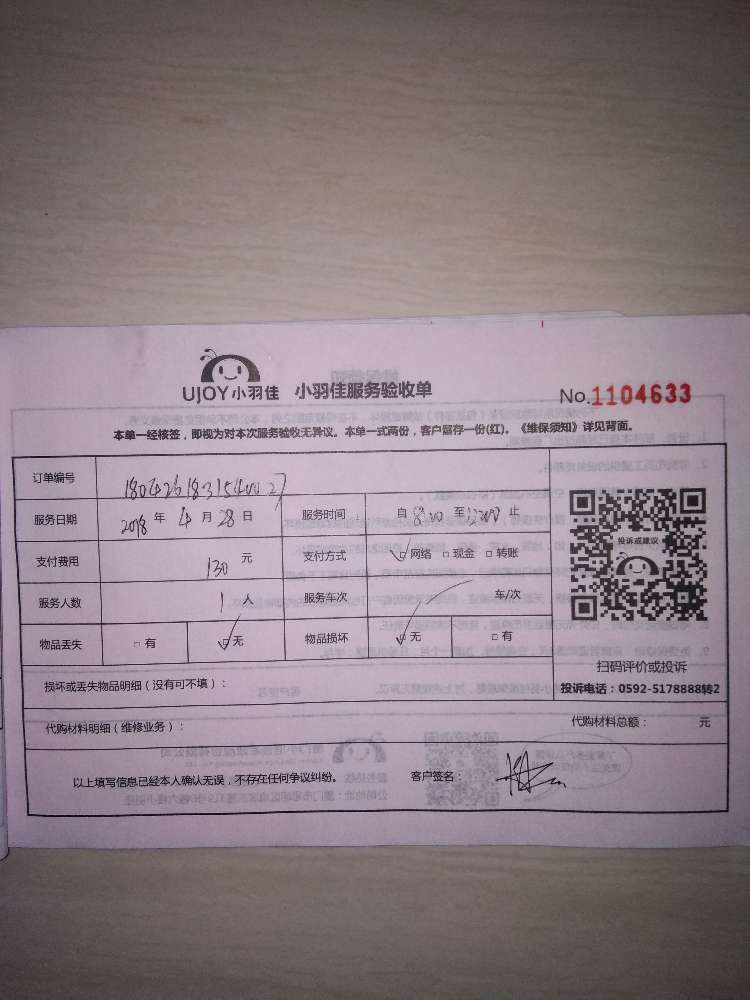 UJOY小羽佳 小羽佳服务验收单 No.1104633
本单一经核签，即视为对本次服务验收无异议。本单一式两份，客户留存一份(红)。《维保须知》详见背面。
订单编号 18042618315400027
服务日期 2018 年 4 月 28 日 服务时间 自 8:00 至 12:00 止
投诉或建议
支付费用 130 元 支付方式 网络 现金 转账
服务人数 1 人 服务车次 车/次
物品丢失 有 无 物品损坏 无 有
扫码评价或投诉
损坏或丢失物品明细（没有可不填）：
投诉电话：0592-5178888转2
代购材料明细（维修业务）： 代购材料总额： 元
以上填写信息已经本人确认无误，不存在任何争议纠纷。 客户签名：